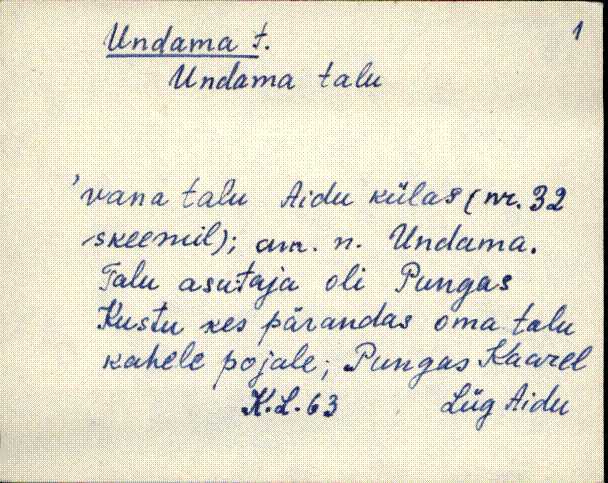 1
Undama t.
Undama talu
'vana talu Aidu külas (nr. 32
skeemil); am. n. Undama.
Talu asutaja oli Pungas
Kustu kes pärandas oma talu
kahele pojale; Pungas Kaarel
K.L. 63 Lüg Aidu